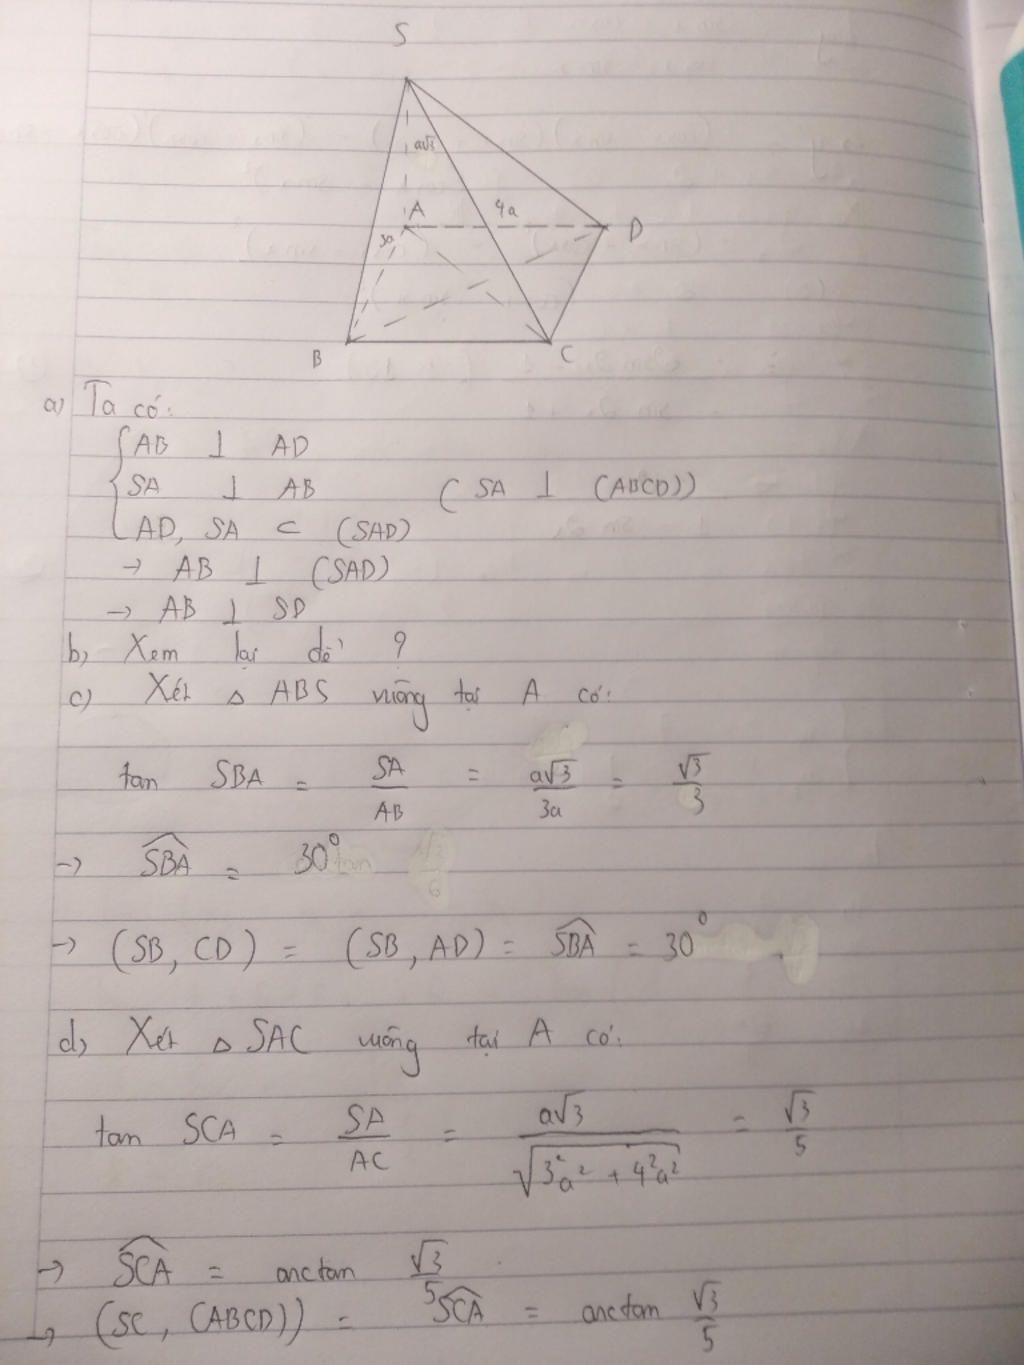 S
a√3
A
4a
D
3a
B
C
a) Ta có:
AB ⊥ AD
SA ⊥ AB (SA ⊥ (ABCD))
AD, SA ⊂ (SAD)
→ AB ⊥ (SAD)
→ AB ⊥ SD
b) Xem lại đề ?
c) Xét △ ABS vuông tại A có:
tan SBA = SA/AB = a√3/3a = √3/3
→ \widehat{SBA} = 30°
→ (SB, CD) = (SB, AD) = \widehat{SBA} = 30°
d) Xét △ SAC vuông tại A có:
tan SCA = SA/AC = a√3/√(3²a² + 4²a²) = √3/5
→ \widehat{SCA} = arctan √3/5
→ (SC, (ABCD)) = \widehat{SCA} = arctan √3/5